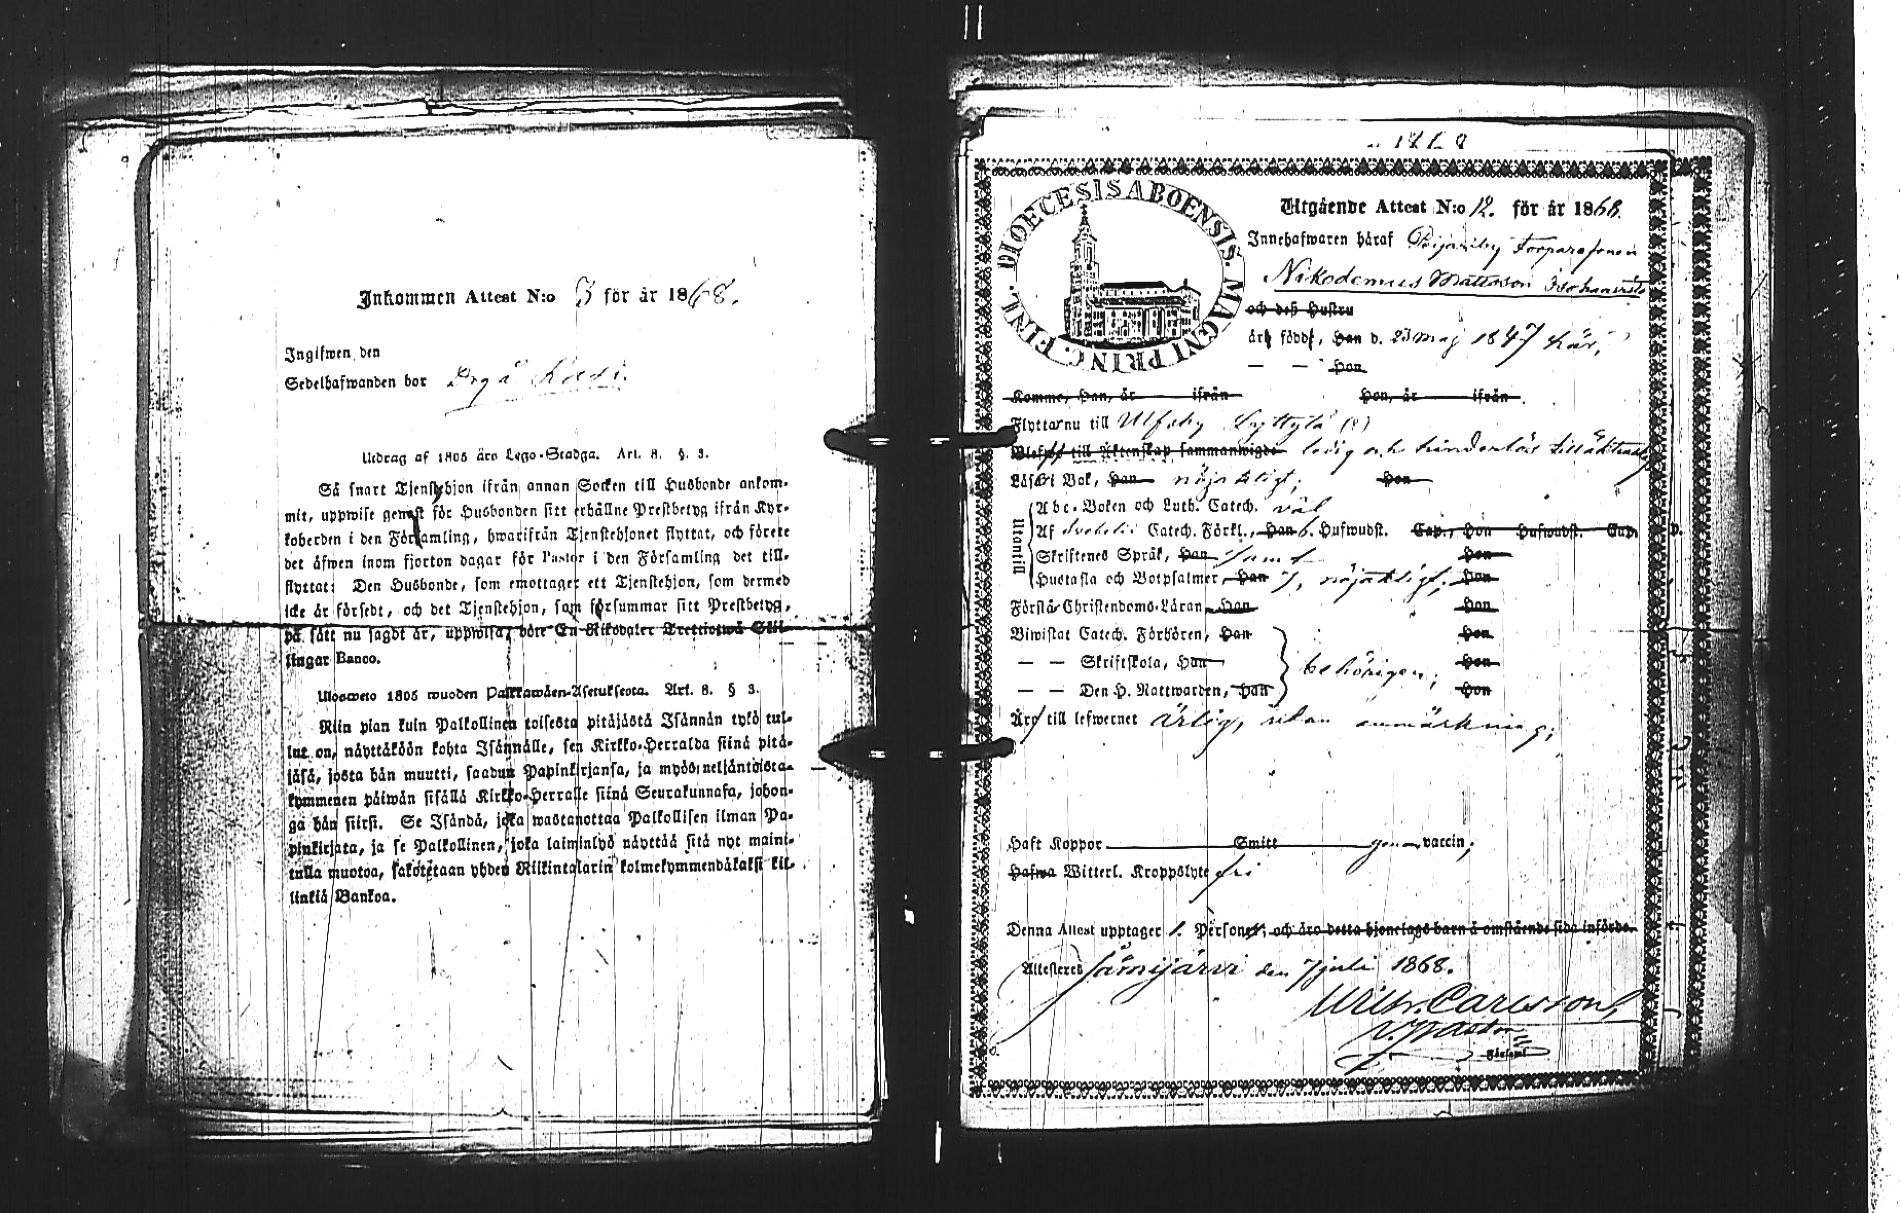 Inkommen Attest N:o 3 för år 1868.
Ingifwen den
Sedelhafwanden bor
Utdrag af 1805 års Lego-Stadga. Art. 8. §. 3.
Så snart Tjenstehjon ifrån annan Socken till Husbonde ankom-
mit, uppwise genast för Husbonden sitt erhållne Prestbetyg ifrån Kyr-
koherden i den Församling, hwarifrån Tjenstehjonet flyttat, och förete
det äfwen inom fjorton dagar för Pastor i den Församling det till-
flyttat: Den Husbonde, som emottager ett Tjenstehjon, som dermed
icke är försedt, och det Tjenstehjon, som försummar sitt Prestbetyg,
på sätt nu sagdt är, uppwisa, böte En Riksdaler Trettiotwå Skil-
lingar Banco.
Ulosweto 1805 wuoden Palkkawäen-Asetuksesta. Art. 8. § 3.
Niin pian kuin Palkollinen toisesta pitäjästä Isännän tykö tul-
lut on, näyttäköön kohta Isännälle, sen Kirkko-Herralda siinä pitä-
jäsä, josta hän muutti, saadun Papinkirjansa, ja myös neljäntoista-
kymmenen päiwän sisällä Kirkko-Herralle siinä Seurakunnasa, johon-
ga hän siirsi. Se Isändä, joka wastanottaa Palkollisen ilman Pa-
pinkirjata, ja se Palkollinen, joka laiminlyö näyttää sitä nyt maini-
tulla muotoa, sakotetaan yhden Riikintalarin kolmekymmendäkaksi kil-
linkiä Bankoa.
1868
DIOECESIS ABOENSIS. MAGNI PRINC. FINL.
Utgående Attest N:o 12. för år 1868.
Innehafwaren häraf Torparesonen
Nikodemus Mattsson
och deß Hustru
äro födde, Han d. 23 maj 1847 här,
— — Hon
Kommo, Han, år ifrån Hon, år ifrån
Flyttar nu till Ulfsby (?)
till Äktenskap sammanwigde ledig och hinderlös till äktenskap
Läser i Bok, Han nöjaktigt; Hon
Utantill
Abc-Boken och Luth. Catech. väl
Af Svebelii Catech. Förkl., Han 6. Hufwudst. Cap., Hon Hufwudst. Cap.
Skriftenes Språk, Han samt Hon
Hustafla och Botpsalmer, Han 7, nöjaktigt; Hon
Förstår Christendoms-Läran, Han Hon
Biwistat Catech. Förhören, Han Hon
— — Skriftskola, Han behörigen; Hon
— — Den H. Nattwarden, Han Hon
Äro till lefwernet ärlig, utan anmärkning;
Haft Koppor Smitt genom vaccin;
Hafwa Witterl. Kroppslyte fri
Denna Attest upptager 1. Personer, och äro detta hjonelags barn å omstående sida införde.
Attesteres Sämsjärvi den 7 juli 1868.
Wilh. Carlsson,
V. Pastor
Församl